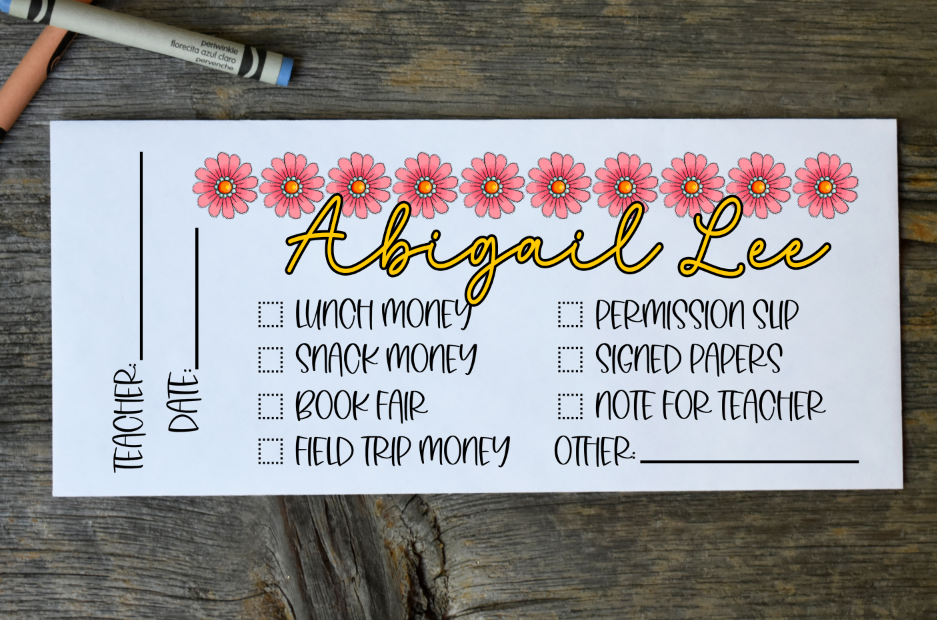 periwinkle
florecita azul claro
pervenche
Abigail Lee
TEACHER:
DATE:
LUNCH MONEY
SNACK MONEY
BOOK FAIR
FIELD TRIP MONEY
PERMISSION SLIP
SIGNED PAPERS
NOTE FOR TEACHER
OTHER: